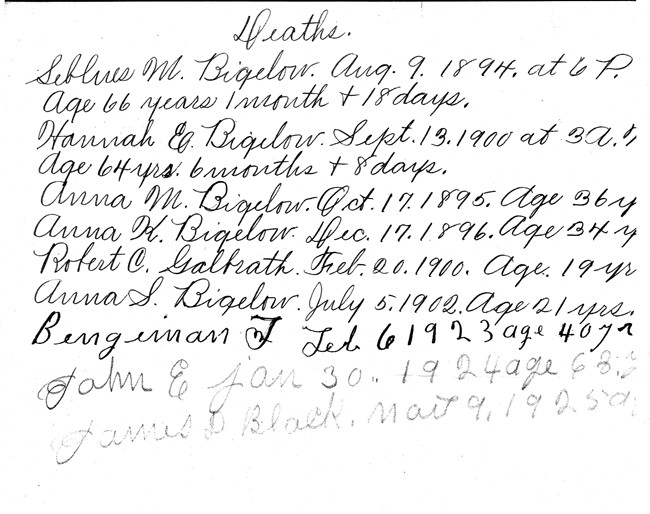 Deaths.
Seblues M. Bigelow. Aug. 9. 1894. at 6 P.
Age 66 years 1 month + 18 days.
Hannah E. Bigelow. Sept. 13. 1900 at 3 A.
Age 64 yrs. 6 months + 8 days.
Anna M. Bigelow. Oct. 17. 1895. Age 36 y
Anna K. Bigelow. Dec. 17. 1896. Age 34 y
Robert C. Galbrath. Feb. 20. 1900. Age. 19 yr
Anna S. Bigelow. July 5. 1902. Age 21 yrs.
Bengeiman F Feb. 6 1923 age 40 yr
John E Jan 30.. 1924 age 68
James D Black. 9, 1925 a